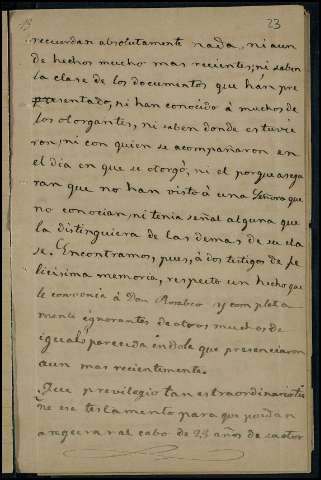 23
recuerdan absolutamente nada, ni aun
de hechos mucho mas recientes; ni saben
la clase de los documentos que han pre
presentado, ni han conocido á muchos de
los otorgantes, ni saben donde estuvie
ron, ni con quien se acompañaron en
el dia en que se otorgó, ni el porque asegu
ran que no han visto á una Señora que
no conocian, ni tenia señal alguna que
la distinguiera de las demas de su cla
se. Encontramos, pues, á dos testigos de fe
licisima memoria, respecto un hecho que
le convenia á Don Rosabro y completa
mente ignorantes de otros muchos de
igual ó parecida indole que presenciaron
aun mas recientemente.
Que previlegio tan estraordinario tie
ne ese testamento para que puedan
asegurar al cabo de 23 años de